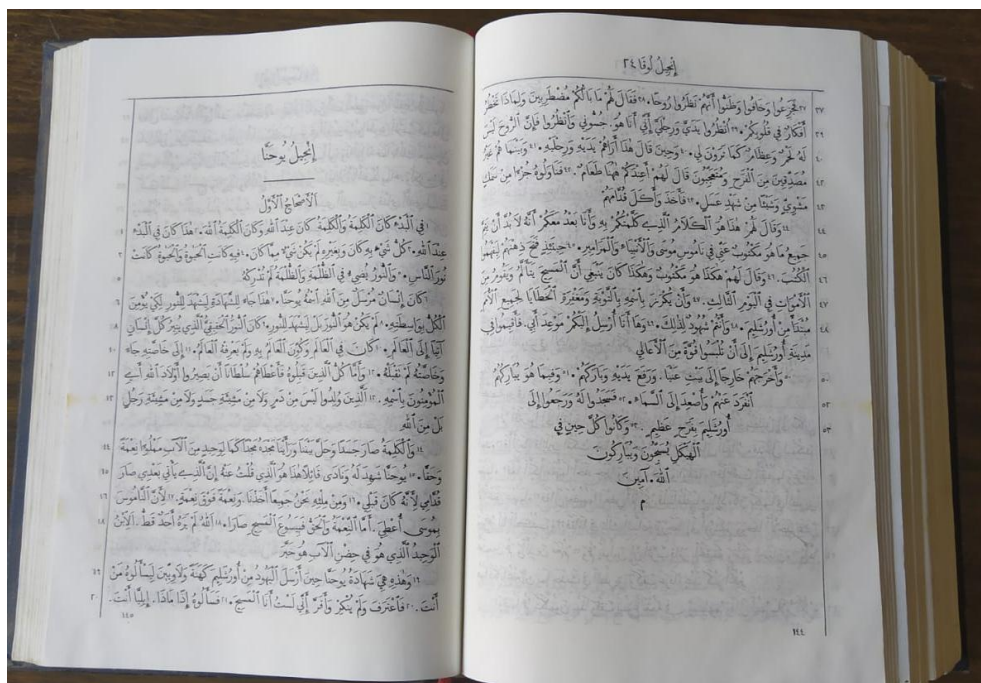 إِنْجِيلُ لُوقَا ٢٤
٣٧ فَجَزِعُوا وَخَافُوا وَظَنُّوا أَنَّهُمْ نَظَرُوا رُوحًا. ٣٨ فَقَالَ لَهُمْ مَا بَالُكُمْ مُضْطَرِبِينَ وَلِمَاذَا تَخْطُرُ
أَفْكَارٌ فِي قُلُوبِكُمْ. ٣٩ اُنْظُرُوا يَدَيَّ وَرِجْلَيَّ إِنِّي أَنَا هُوَ. جُسُّونِي وَٱنْظُرُوا فَإِنَّ ٱلرُّوحَ لَيْسَ
لَهُ لَحْمٌ وَعِظَامٌ كَمَا تَرَوْنَ لِي. ٤٠ وَحِينَ قَالَ هٰذَا أَرَاهُمْ يَدَيْهِ وَرِجْلَيْهِ. ٤١ وَبَيْنَمَا هُمْ غَيْرُ
مُصَدِّقِينَ مِنَ ٱلْفَرَحِ وَمُتَعَجِّبُونَ قَالَ لَهُمْ أَعِنْدَكُمْ هٰهُنَا طَعَامٌ. ٤٢ فَنَاوَلُوهُ جُزْءًا مِنْ سَمَكٍ
مَشْوِيٍّ وَشَيْئًا مِنْ شَهْدِ عَسَلٍ. ٤٣ فَأَخَذَ وَأَكَلَ قُدَّامَهُمْ
٤٤ وَقَالَ لَهُمْ هٰذَا هُوَ ٱلْكَلَامُ ٱلَّذِي كَلَّمْتُكُمْ بِهِ وَأَنَا بَعْدُ مَعَكُمْ أَنَّهُ لَا بُدَّ أَنْ يَتِمَّ
جَمِيعُ مَا هُوَ مَكْتُوبٌ عَنِّي فِي نَامُوسِ مُوسَى وَٱلْأَنْبِيَاءِ وَٱلْمَزَامِيرِ. ٤٥ حِينَئِذٍ فَتَحَ ذِهْنَهُمْ لِيَفْهَمُوا
ٱلْكُتُبَ. ٤٦ وَقَالَ لَهُمْ هٰكَذَا هُوَ مَكْتُوبٌ وَهٰكَذَا كَانَ يَنْبَغِي أَنَّ ٱلْمَسِيحَ يَتَأَلَّمُ وَيَقُومُ مِنَ
ٱلْأَمْوَاتِ فِي ٱلْيَوْمِ ٱلثَّالِثِ. ٤٧ وَأَنْ يُكْرَزَ بِٱسْمِهِ بِٱلتَّوْبَةِ وَمَغْفِرَةِ ٱلْخَطَايَا لِجَمِيعِ ٱلْأُمَمِ
مُبْتَدَأً مِنْ أُورُشَلِيمَ. ٤٨ وَأَنْتُمْ شُهُودٌ لِذٰلِكَ. ٤٩ وَهَا أَنَا أُرْسِلُ إِلَيْكُمْ مَوْعِدَ أَبِي. فَأَقِيمُوا فِي
مَدِينَةِ أُورُشَلِيمَ إِلَى أَنْ تُلْبَسُوا قُوَّةً مِنَ ٱلْأَعَالِي
٥٠ وَأَخْرَجَهُمْ خَارِجًا إِلَى بَيْتِ عَنْيَا. وَرَفَعَ يَدَيْهِ وَبَارَكَهُمْ. ٥١ وَفِيمَا هُوَ يُبَارِكُهُمُ
ٱنْفَرَدَ عَنْهُمْ وَأُصْعِدَ إِلَى ٱلسَّمَاءِ. ٥٢ فَسَجَدُوا لَهُ وَرَجَعُوا إِلَى
أُورُشَلِيمَ بِفَرَحٍ عَظِيمٍ. ٥٣ وَكَانُوا كُلَّ حِينٍ فِي
ٱلْهَيْكَلِ يُسَبِّحُونَ وَيُبَارِكُونَ
ٱللهَ. آمِينَ
م
١٤٤
إِنْجِيلُ يُوحَنَّا
ٱلْأَصْحَاحُ ٱلْأَوَّلُ
١ فِي ٱلْبَدْءِ كَانَ ٱلْكَلِمَةُ وَٱلْكَلِمَةُ كَانَ عِنْدَ ٱللهِ وَكَانَ ٱلْكَلِمَةُ ٱللهَ. ٢ هٰذَا كَانَ فِي ٱلْبَدْءِ
عِنْدَ ٱللهِ. ٣ كُلُّ شَيْءٍ بِهِ كَانَ وَبِغَيْرِهِ لَمْ يَكُنْ شَيْءٌ مِمَّا كَانَ. ٤ فِيهِ كَانَتِ ٱلْحَيٰوةُ وَٱلْحَيٰوةُ كَانَتْ
نُورَ ٱلنَّاسِ. ٥ وَٱلنُّورُ يُضِيءُ فِي ٱلظُّلْمَةِ وَٱلظُّلْمَةُ لَمْ تُدْرِكْهُ
٦ كَانَ إِنْسَانٌ مُرْسَلٌ مِنَ ٱللهِ ٱسْمُهُ يُوحَنَّا. ٧ هٰذَا جَاءَ لِلشَّهَادَةِ لِيَشْهَدَ لِلنُّورِ لِكَيْ يُؤْمِنَ
ٱلْكُلُّ بِوَاسِطَتِهِ. ٨ لَمْ يَكُنْ هُوَ ٱلنُّورَ بَلْ لِيَشْهَدَ لِلنُّورِ. ٩ كَانَ ٱلنُّورُ ٱلْحَقِيقِيُّ ٱلَّذِي يُنِيرُ كُلَّ إِنْسَانٍ
آتِيًا إِلَى ٱلْعَالَمِ. ١٠ كَانَ فِي ٱلْعَالَمِ وَكُوِّنَ ٱلْعَالَمُ بِهِ وَلَمْ يَعْرِفْهُ ٱلْعَالَمُ. ١١ إِلَى خَاصَّتِهِ جَاءَ
وَخَاصَّتُهُ لَمْ تَقْبَلْهُ. ١٢ وَأَمَّا كُلُّ ٱلَّذِينَ قَبِلُوهُ فَأَعْطَاهُمْ سُلْطَانًا أَنْ يَصِيرُوا أَوْلَادَ ٱللهِ أَيِ
ٱلْمُؤْمِنُونَ بِٱسْمِهِ. ١٣ اَلَّذِينَ وُلِدُوا لَيْسَ مِنْ دَمٍ وَلَا مِنْ مَشِيئَةِ جَسَدٍ وَلَا مِنْ مَشِيئَةِ رَجُلٍ
بَلْ مِنَ ٱللهِ
١٤ وَٱلْكَلِمَةُ صَارَ جَسَدًا وَحَلَّ بَيْنَنَا وَرَأَيْنَا مَجْدَهُ مَجْدًا كَمَا لِوَحِيدٍ مِنَ ٱلْآبِ مَمْلُوءًا نِعْمَةً
وَحَقًّا. ١٥ يُوحَنَّا شَهِدَ لَهُ وَنَادَى قَائِلًا هٰذَا هُوَ ٱلَّذِي قُلْتُ عَنْهُ إِنَّ ٱلَّذِي يَأْتِي بَعْدِي صَارَ
قُدَّامِي لِأَنَّهُ كَانَ قَبْلِي. ١٦ وَمِنْ مِلْئِهِ نَحْنُ جَمِيعًا أَخَذْنَا. وَنِعْمَةً فَوْقَ نِعْمَةٍ. ١٧ لِأَنَّ ٱلنَّامُوسَ
بِمُوسَى أُعْطِيَ. أَمَّا ٱلنِّعْمَةُ وَٱلْحَقُّ فَبِيَسُوعَ ٱلْمَسِيحِ صَارَا. ١٨ اَللهُ لَمْ يَرَهُ أَحَدٌ قَطُّ. اَلِٱبْنُ
ٱلْوَحِيدُ ٱلَّذِي هُوَ فِي حِضْنِ ٱلْآبِ هُوَ خَبَّرَ
١٩ وَهٰذِهِ هِيَ شَهَادَةُ يُوحَنَّا حِينَ أَرْسَلَ ٱلْيَهُودُ مِنْ أُورُشَلِيمَ كَهَنَةً وَلَاوِيِّينَ لِيَسْأَلُوهُ مَنْ
أَنْتَ. ٢٠ فَٱعْتَرَفَ وَلَمْ يُنْكِرْ وَأَقَرَّ أَنِّي لَسْتُ أَنَا ٱلْمَسِيحَ. ٢١ فَسَأَلُوهُ إِذًا مَاذَا. إِيلِيَّا أَنْتَ.
١٤٥